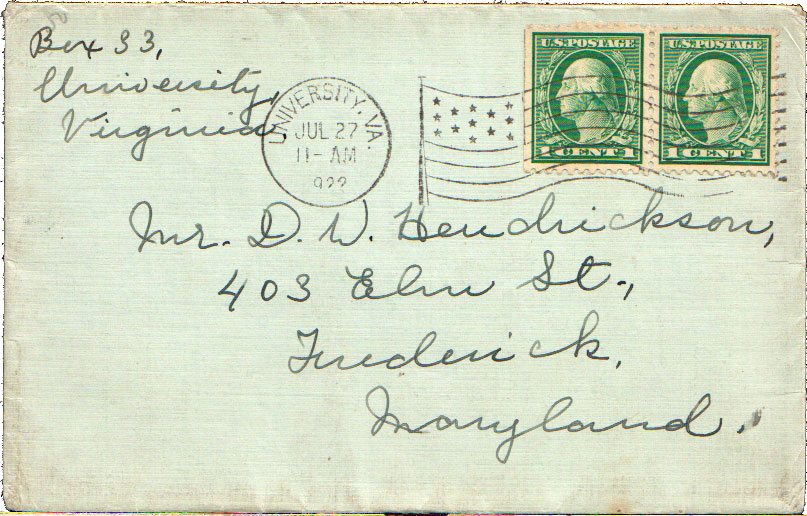 Box 33,
University,
Virginia
UNIVERSITY, VA.
JUL 27
11-AM
1922
U.S. POSTAGE
1 CENT 1
U.S. POSTAGE
1 CENT 1
Mr. D. W. Hendrickson,
403 Elm St.,
Frederick,
Maryland.